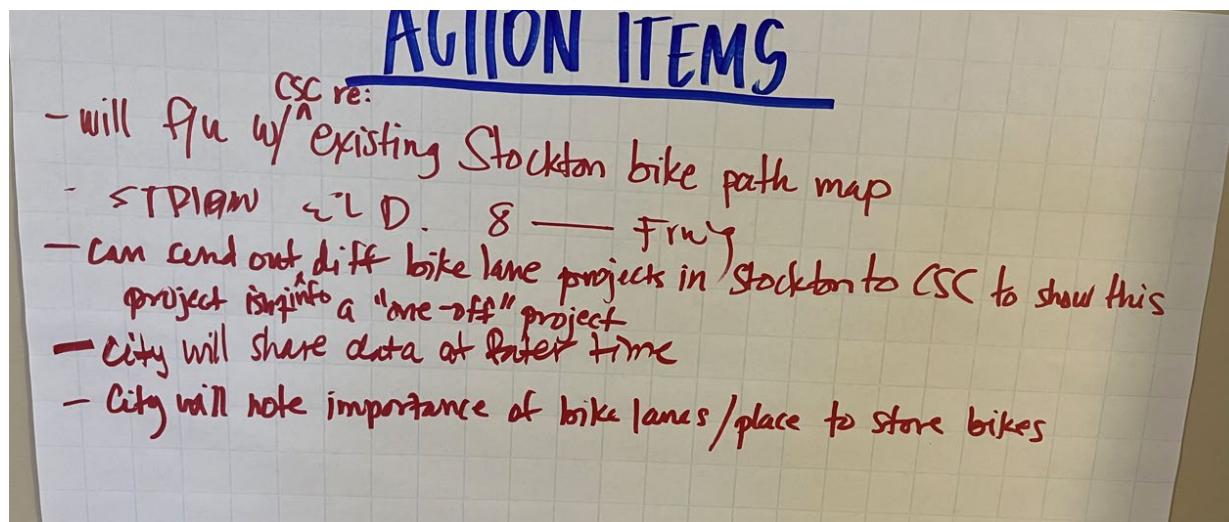 ACTION ITEMS
CSC re:
- will f/u w/ ^ existing Stockton bike path map
-
- can send out ^ diff bike lane projects in Stockton to CSC to show this
info
project isn't a "one-off" project
- City will share data at later time
- City will note importance of bike lanes/place to store bikes